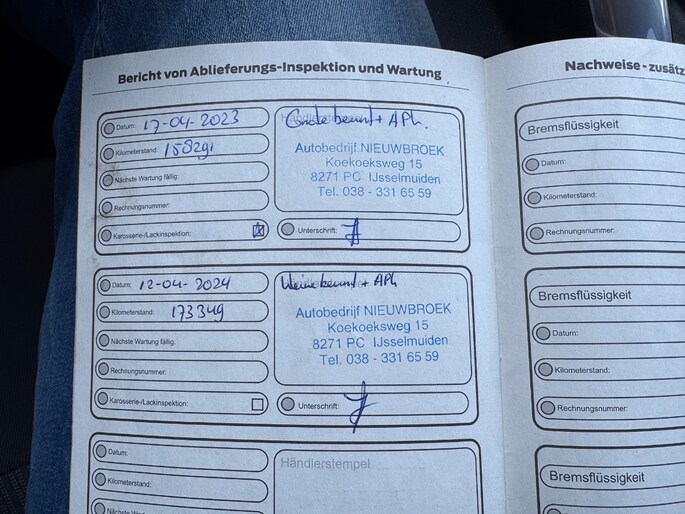 Bericht von Ablieferungs-Inspektion und Wartung
Datum: 17-04-2023
Kilometerstand: 158291
Nächste Wartung fällig:
Rechnungsnummer:
Karosserie-/Lackinspektion:
Händlerstempel
Grote beurt + APK.
Autobedrijf NIEUWBROEK
Koekoeksweg 15
8271 PC IJsselmuiden
Tel. 038 - 331 65 59
Unterschrift:
Datum: 12-04-2024
Kilometerstand: 173349
Nächste Wartung fällig:
Rechnungsnummer:
Karosserie-/Lackinspektion:
beurt + APK
Autobedrijf NIEUWBROEK
Koekoeksweg 15
8271 PC IJsselmuiden
Tel. 038 - 331 65 59
Unterschrift:
Datum:
Kilometerstand:
Nächste Wartung
Händlerstempel
Nachweise - zusätz
Bremsflüssigkeit
Datum:
Kilometerstand:
Rechnungsnummer:
Bremsflüssigkeit
Datum:
Kilometerstand:
Rechnungsnummer:
Bremsflüssigkeit